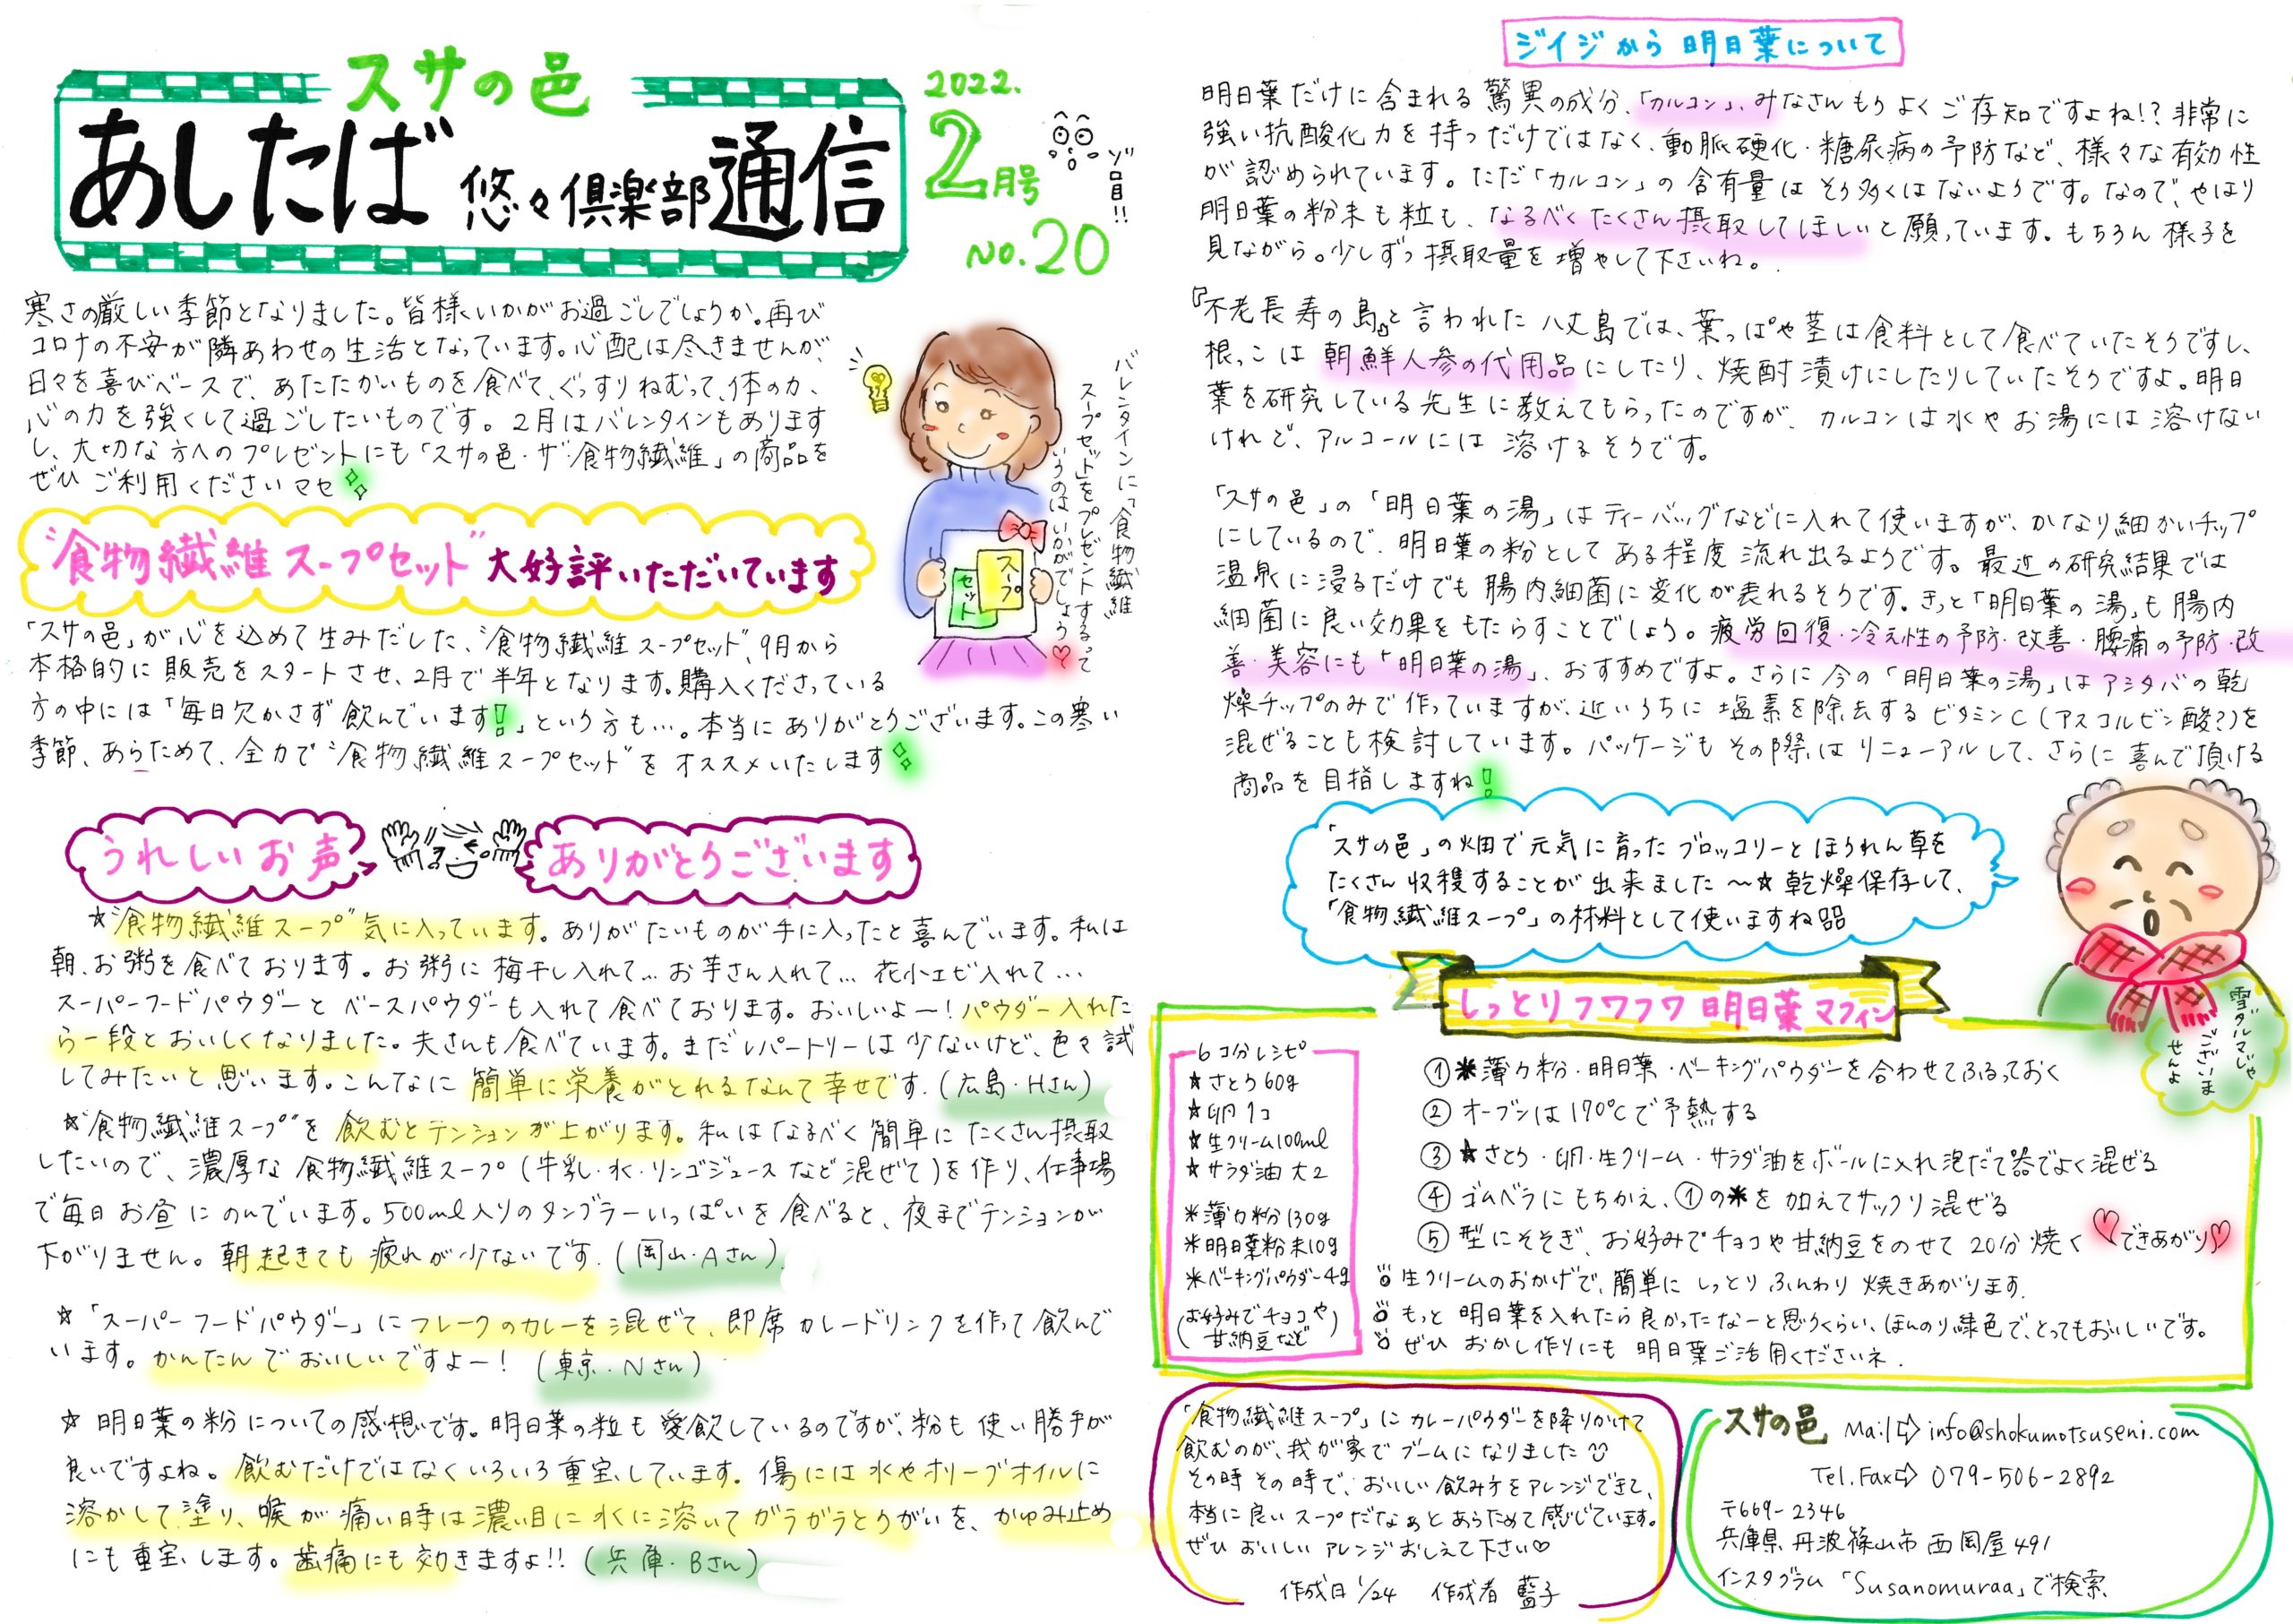 スサの邑
あしたば 悠々倶楽部 通信
2022.
2月号
ゾロ目!!
No.20
寒さの厳しい季節となりました。皆様いかがお過ごしでしょうか。再び
コロナの不安が隣あわせの生活となっています。心配は尽きませんが、
日々を喜びベースで、あたたかいものを食べて、ぐっすりねむって、体の力、
心の力を強くして過ごしたいものです。2月はバレンタインもあります
し、大切な方へのプレゼントにも「スサの邑・ザ・食物繊維」の商品を
ぜひご利用くださいマセ
バレンタインに「食物繊維
スープセット」をプレゼントするって
いうのはいかがでしょう♡
スープ
セット
"食物繊維スープセット"大好評いただいています
「スサの邑」が心を込めて生みだした、"食物繊維スープセット"、9月から
本格的に販売をスタートさせ、2月で半年となります。購入くださっている
方の中には「毎日欠かさず飲んでいます!」という方も…。本当にありがとうございます。この寒い
季節、あらためて、全力で"食物繊維スープセット"をオススメいたします
うれしいお声
ありがとうございます
☆"食物繊維スープ"気に入っています。ありがたいものが手に入ったと喜んでいます。私は
朝、お粥を食べております。お粥に梅干し入れて…お芋さん入れて…花小エビ入れて…
スーパーフードパウダーとベースパウダーも入れて食べております。おいしいよー!パウダー入れた
ら一段とおいしくなりました。夫さんも食べています。まだレパートリーは少ないけど、色々試
してみたいと思います。こんなに簡単に栄養がとれるなんて幸せです.(広島・Hさん)
☆"食物繊維スープ"を飲むとテンションが上がります。私はなるべく簡単にたくさん摂取
したいので、濃厚な食物繊維スープ(牛乳・水・リンゴジュースなど混ぜて)を作り、仕事場
で毎日お昼にのんでいます。500ml入りのタンブラーいっぱいを食べると、夜までテンションが
下がりません。朝起きても疲れが少ないです.(岡山・Aさん)
☆「スーパーフードパウダー」にフレークのカレーを混ぜて、即席カレードリンクを作って飲んで
います。かんたんでおいしいですよー!(東京・Nさん)
☆明日葉の粉についての感想です。明日葉の粒も愛飲しているのですが、粉も使い勝手が
良いですよね。飲むだけではなくいろいろ重宝しています。傷には水やオリーブオイルに
溶かして塗り、喉が痛い時は濃い目に水に溶いてガラガラとうがいを、かゆみ止め
にも重宝します。歯痛にも効きますよ!!(兵庫・Bさん)
ジイジから明日葉について
明日葉だけに含まれる驚異の成分、「カルコン」、みなさんもうよくご存知ですよね!?非常に
強い抗酸化力を持つだけではなく、動脈硬化・糖尿病の予防など、様々な有効性
が認められています。ただ「カルコン」の含有量はそう多くはないようです。なので、やはり
明日葉の粉末も粒も、なるべくたくさん摂取してほしいと願っています。もちろん様子を
見ながら。少しずつ摂取量を増やして下さいね。
『不老長寿の島』と言われた八丈島では、葉っぱや茎は食料として食べていたそうですし、
根っこは朝鮮人参の代用品にしたり、焼酎漬けにしたりしていたそうですよ。明日
葉を研究している先生に教えてもらったのですが、カルコンは水やお湯には溶けない
けれど、アルコールには溶けるそうです。
「スサの邑」の「明日葉の湯」はティーバッグなどに入れて使いますが、かなり細かいチップ
にしているので、明日葉の粉としてある程度流れ出るようです。最近の研究結果では
温泉に浸るだけでも腸内細菌に変化が表れるそうです。きっと「明日葉の湯」も腸内
細菌に良い効果をもたらすことでしょう。疲労回復・冷え性の予防・改善・腰痛の予防・改
善・美容にも「明日葉の湯」、おすすめですよ。さらに今の「明日葉の湯」はアシタバの乾
燥チップのみで作っていますが、近いうちに塩素を除去するビタミンC(アスコルビン酸?)を
混ぜることも検討しています。パッケージもその際はリニューアルして、さらに喜んで頂ける
商品を目指しますね!
「スサの邑」の畑で元気に育ったブロッコリーとほうれん草を
たくさん収穫することが出来ました〜☆乾燥保存して、
「食物繊維スープ」の材料として使いますね
雪ダルマじゃ
ございま
せんよ
しっとりフワフワ明日葉マフィン
6コ分レシピ
★さとう60g
★卵1コ
★生クリーム100ml
★サラダ油 大2
＊薄力粉130g
＊明日葉粉末10g
＊ベーキングパウダー4g
(お好みでチョコや
甘納豆など)
①＊薄力粉・明日葉・ベーキングパウダーを合わせてふるっておく
②オーブンは170℃で予熱する
③★さとう・卵・生クリーム・サラダ油をボールに入れ泡だて器でよく混ぜる
④ゴムベラにもちかえ、①の＊を加えてサックリ混ぜる
⑤型にそそぎ、お好みでチョコや甘納豆をのせて20分焼く ♡できあがり♡
生クリームのおかげで、簡単にしっとりふんわり焼きあがります.
もっと明日葉を入れたら良かったなーと思うくらい、ほんのり緑色で、とってもおいしいです。
ぜひおかし作りにも明日葉ご活用くださいネ.
「食物繊維スープ」にカレーパウダーを降りかけて
飲むのが、我が家でブームになりました
その時その時で、おいしい飲み方をアレンジできて、
本当に良いスープだなぁとあらためて感じています。
ぜひおいしいアレンジおしえて下さい♡
作成日1/24 作成者 藍子
スサの邑 Mail⇨info@shokumotsuseni.com
Tel.Fax⇨079-506-2892
〒669-2346
兵庫県丹波篠山市西岡屋491
インスタグラム「Susanomuraa」で検索